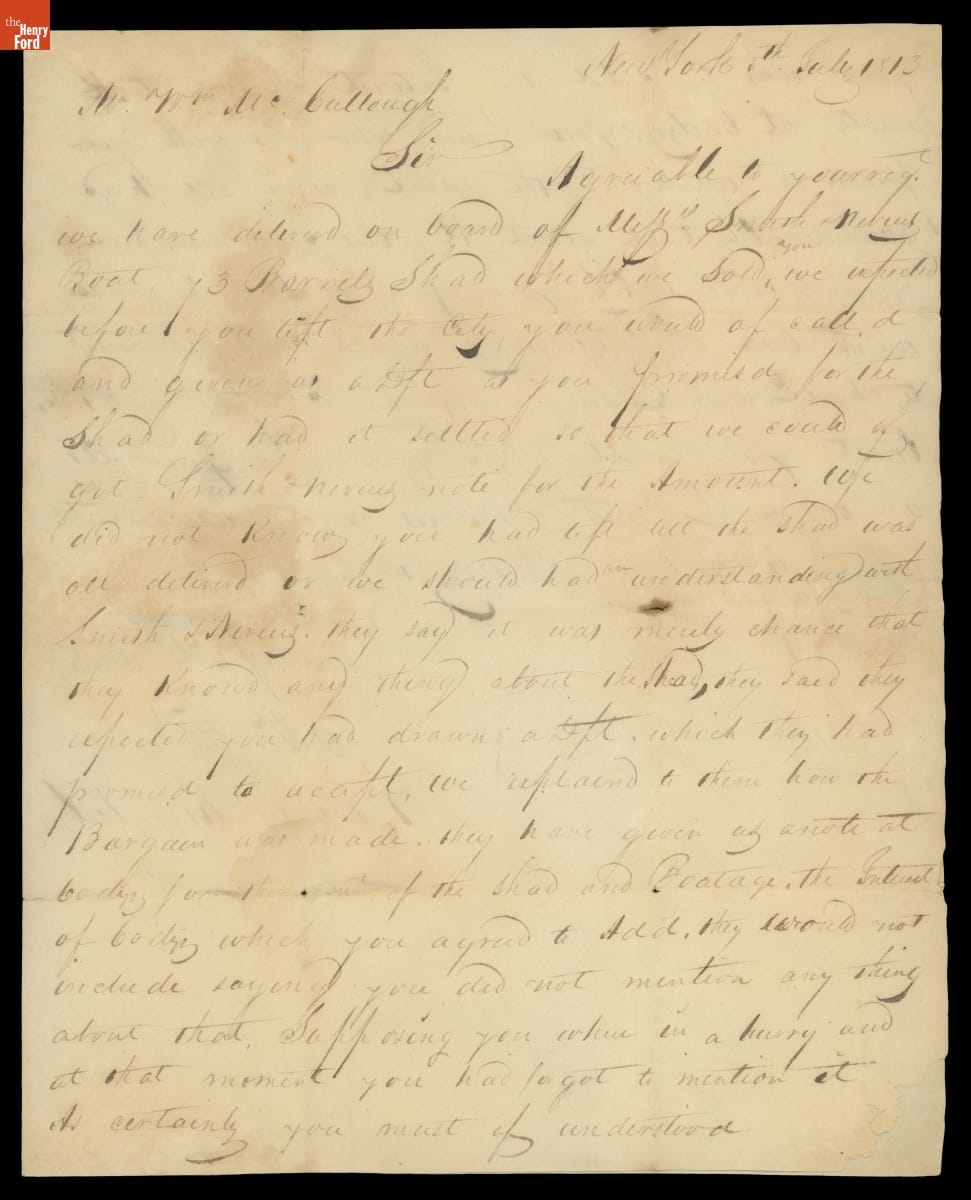 the Henry Ford
New York 5th July 1813
Mr. Wm. Mc. Cullough
Sir
Agreeable to your reqt.
we have deliverd on board of Messrs. Smith & Nevius
Boat, 73 Barrels Shad which we Sold, you we expected
before you left the City, you would of calld
and given us a Dft as you promisd for the
Shad or had it settled so that we could of
got Smith & Nevius note for the Amount. We
did not know you had left till the shad was
all deliverd or we should had an understanding with
Smith & Nevius. they say it was merely chance that
they knowd any thing about the shad, they said they
expected you had drawn a Dft. which they had
promisd to acapt, we explaind to them how the
Bargain was made. they have given us a note at
60 dys for the amt of the shad and Boatage. the Interest
of 60 dys which you agreed to Add. they would not
include saying you did not mention any thing
about that, Supposing you where in a hurry and
at that moment you had forgot to mention it
As certainly you must of understood